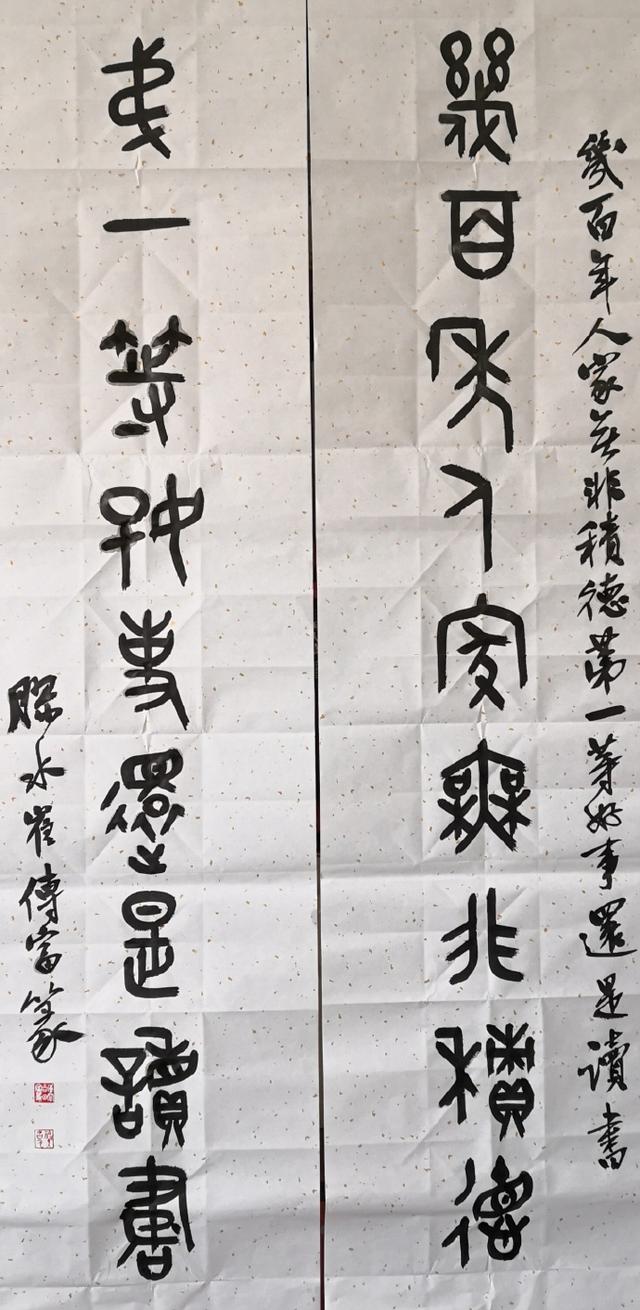 幾百年人家無非積德第一等好事還是讀書
幾百年人家無非積德
弟一等好事還是讀書
膠水崔傳富篆